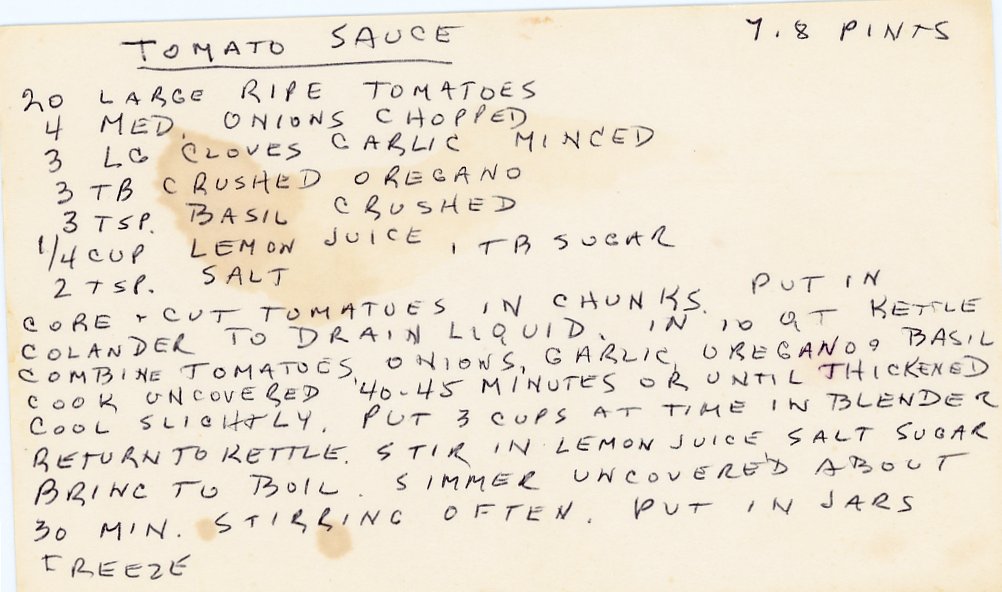 TOMATO SAUCE 7.8 PINTS
20 LARGE RIPE TOMATOES
4 MED. ONIONS CHOPPED
3 LG CLOVES GARLIC MINCED
3 TB CRUSHED OREGANO
3 TSP. BASIL CRUSHED
1/4 CUP LEMON JUICE, 1 TB SUGAR
2 TSP. SALT
CORE + CUT TOMATOES IN CHUNKS. PUT IN
COLANDER TO DRAIN LIQUID. IN 10 QT KETTLE
COMBINE TOMATOES, ONIONS, GARLIC, OREGANO & BASIL
COOK UNCOVERED 40-45 MINUTES OR UNTIL THICKENED
COOL SLIGHTLY. PUT 3 CUPS AT TIME IN BLENDER
RETURN TO KETTLE. STIR IN LEMON JUICE SALT SUGAR
BRING TO BOIL. SIMMER UNCOVERED ABOUT
30 MIN. STIRRING OFTEN. PUT IN JARS
FREEZE